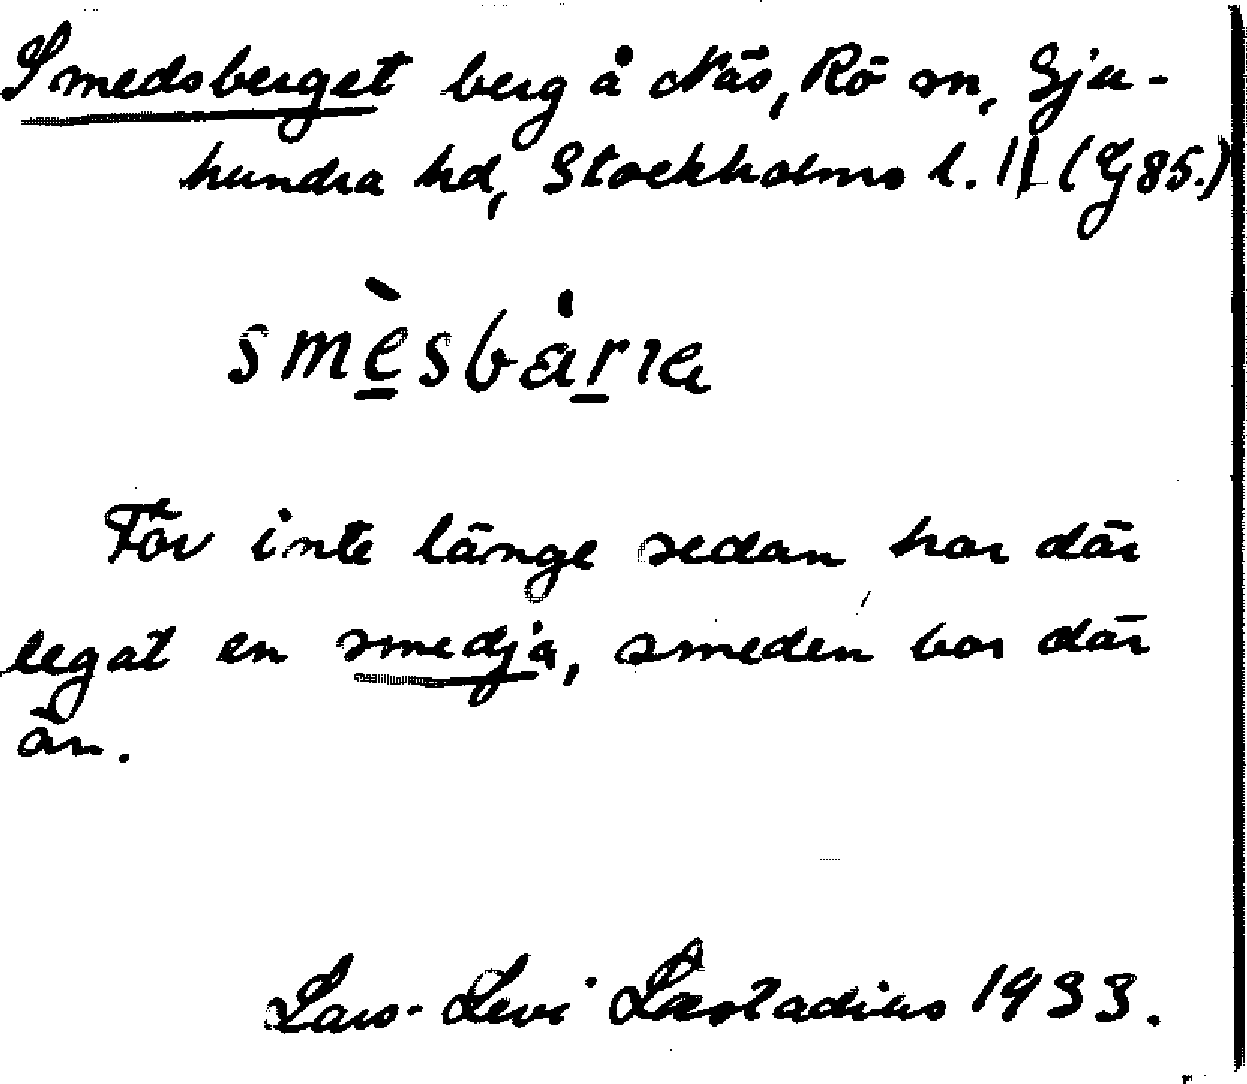 Smedsberget berg å Näs, Rö sn, Sju-
hundra hd, Stockholms l. || (G 85.)
För inte länge sedan har där
legat en smedja, smeden bor där
än.
Lars-Levi Læstadius 1933.